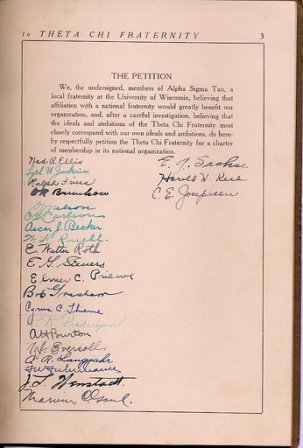 to THETA CHI FRATERNITY 3
THE PETITION
We, the undersigned, members of Alpha Sigma Tau, a
local fraternity at the University of Wisconsin, believing that
affiliation with a national fraternity would greatly benefit our
organization, and, after a careful investigation, believing that
the ideals and ambitions of the Theta Chi Fraternity most
closely correspond with our own ideals and ambitions, do here-
by respectfully petition the Theta Chi Fraternity for a char-
ter of membership in its national organization.
Ned R. Ellis
Ralph
C. G. Carlson
Oscar J. Becker
C. Walter Roth
E. G.
Elmer C.
Bob Gresham
Cyrus C. Thieme
A. H. Burton
A. A.
J. T.
Marvin
Harold W.
C. E. Josephson